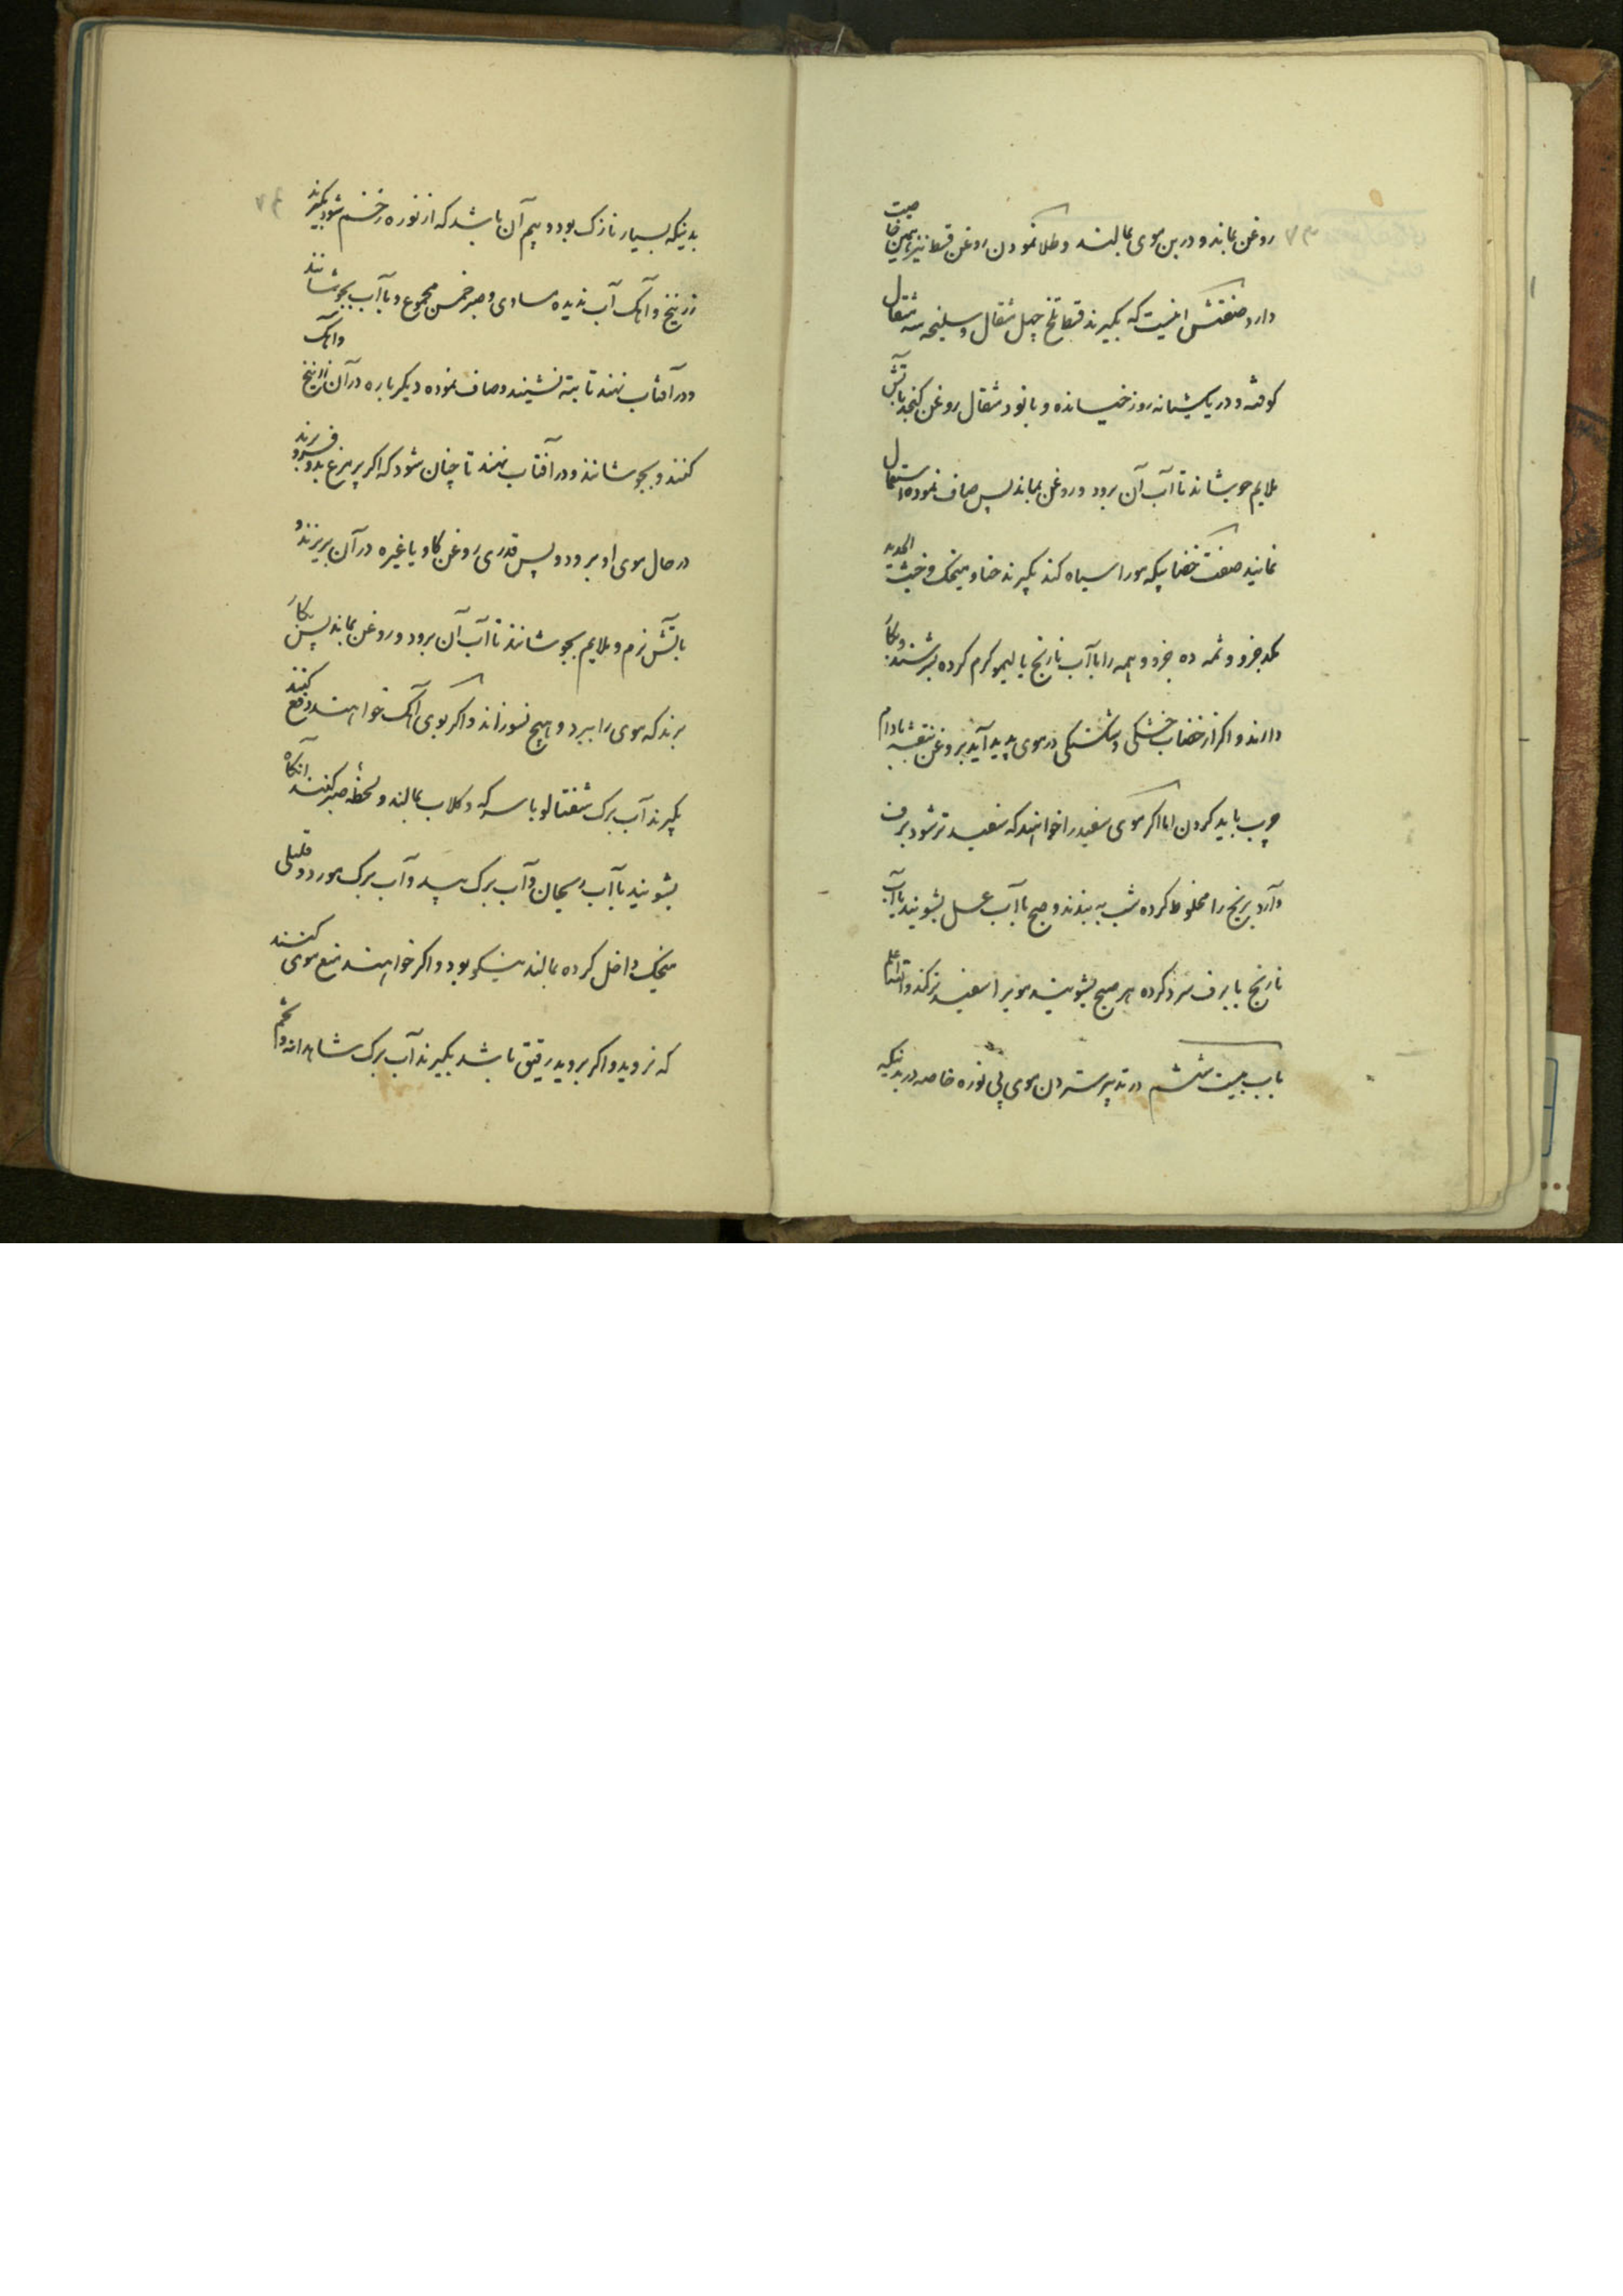 ۷۳
روغن بماند و در بن موی بمالند و طلا نمودن روغن قسط نیز همین خاصیت
دارد صنعتش اینست که بگیرند قسط تلخ چهل مثقال و سلیخه سه مثقال
کوفته و در یکشبانه روز خیسانده و با نود مثقال روغن کنجد بآتش
ملایم جوشاند تا آب آن برود و روغن بماند پس صاف نموده استعمال
نمایند صنعت خضابیکه مو را سیاه کند بگیرند حنا و میخک و خبث الحدید
یکجزو و ده جزو و همه را با آب نارنج یا لیمو گرم کرده بسرشند و بکار
دارند و اگر از خضاب خشکی و شکستگی در موی پدید آید بروغن بنفشه بادام
چرب باید کردن اما اگر موی سفید را خواهند که سفیدتر شود برف
و آرد برنج را مخلوط کرده شب به بندند و صبح با آب عسل بشویند یا آب
نارنج با برف سرد کرده هر صبح بشویند مو را سفیدتر کند والله اعلم
باب بیست ششم در تدبیر ستردن موی بی نوره خاصه در بدنیکه
۷۴
بدنیکه بسیار نازک بود و بیم آن باشد که از نوره زخم شود بگیرند
زرنیخ و آهک آب ندیده مساوی و صبر خمس مجموع و با آب بجوشانند
و در آفتاب نهند تا ته نشیند و صاف نموده دیگر باره در آن زرنیخ و آهک
کنند و بجوشانند و در آفتاب نهند تا چنان شود که اگر پر مرغ بدو فرو برند
در حال موی او برود و پس قدری روغن گاو یا غیره در آن بریزند و
بآتش نرم و ملایم بجوشانند تا آب آن برود و روغن بماند پس بکار
برند که موی را ببرد و هیچ نسوزاند و اگر بوی آهک خواهند دفع کنند
بگیرند آب برک شفتالو با سرکه و گلاب بمالند و لحظهٔ صبر کنند آنگاه
بشویند با آب ریحان و آب برک بید و آب برک مورد و قلیلی
میخک داخل کرده بمالند نیکو بود و اگر خواهند منع موی کنند
که نروید و اگر بروید رقیق باشد بگیرند آب برک شاهدانه و تخم